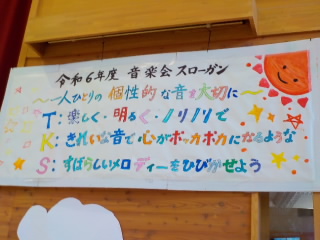 令和6年度 音楽会スローガン
～一人ひとりの個性的な音を大切に～
T：楽しく・明るく・ノリノリで
K：きれいな音で心がポッカポカになるような
S：すばらしいメロディーをひびかせよう